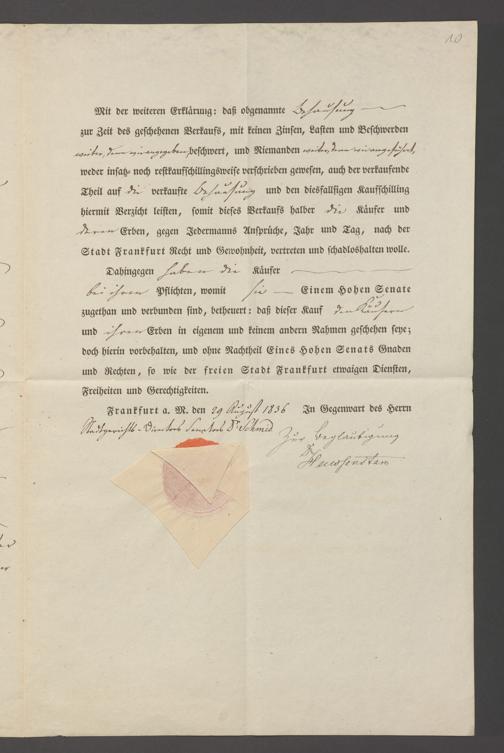 10
Mit der weiteren Erklärung: daß obgenannte Behausung
zur Zeit des geschehenen Verkaufs, mit keinen Zinsen, Lasten und Beschwerden
weiter, denn wie angegeben, beschwert, und Niemanden weiter, denn wie angeführt,
weder insatz- noch restkaufschillingsweise verschrieben gewesen, auch der verkaufende
Theil auf die verkaufte Behausung und den diesfallsigen Kaufschilling
hiermit Verzicht leisten, somit dieses Verkaufs halber die Käufer und
deren Erben, gegen Jedermanns Ansprüche, Jahr und Tag, nach der
Stadt Frankfurt Recht und Gewohnheit, vertreten und schadloshalten wolle.
Dahingegen haben die Käufer
bei ihren Pflichten, womit sie Einem Hohen Senate
zugethan und verbunden sind, betheuert: daß dieser Kauf den Käufern
und ihren Erben in eigenem und keinem andern Nahmen geschehen seye;
doch hierin vorbehalten, und ohne Nachtheil Eines Hohen Senats Gnaden
und Rechten, so wie der freien Stadt Frankfurt etwaigen Diensten,
Freiheiten und Gerechtigkeiten.
Frankfurt a. M. den 29 August 1836 In Gegenwart des Herrn
Stadtgerichts-Directors Senators Dr Schmid
Zur Beglaubigung